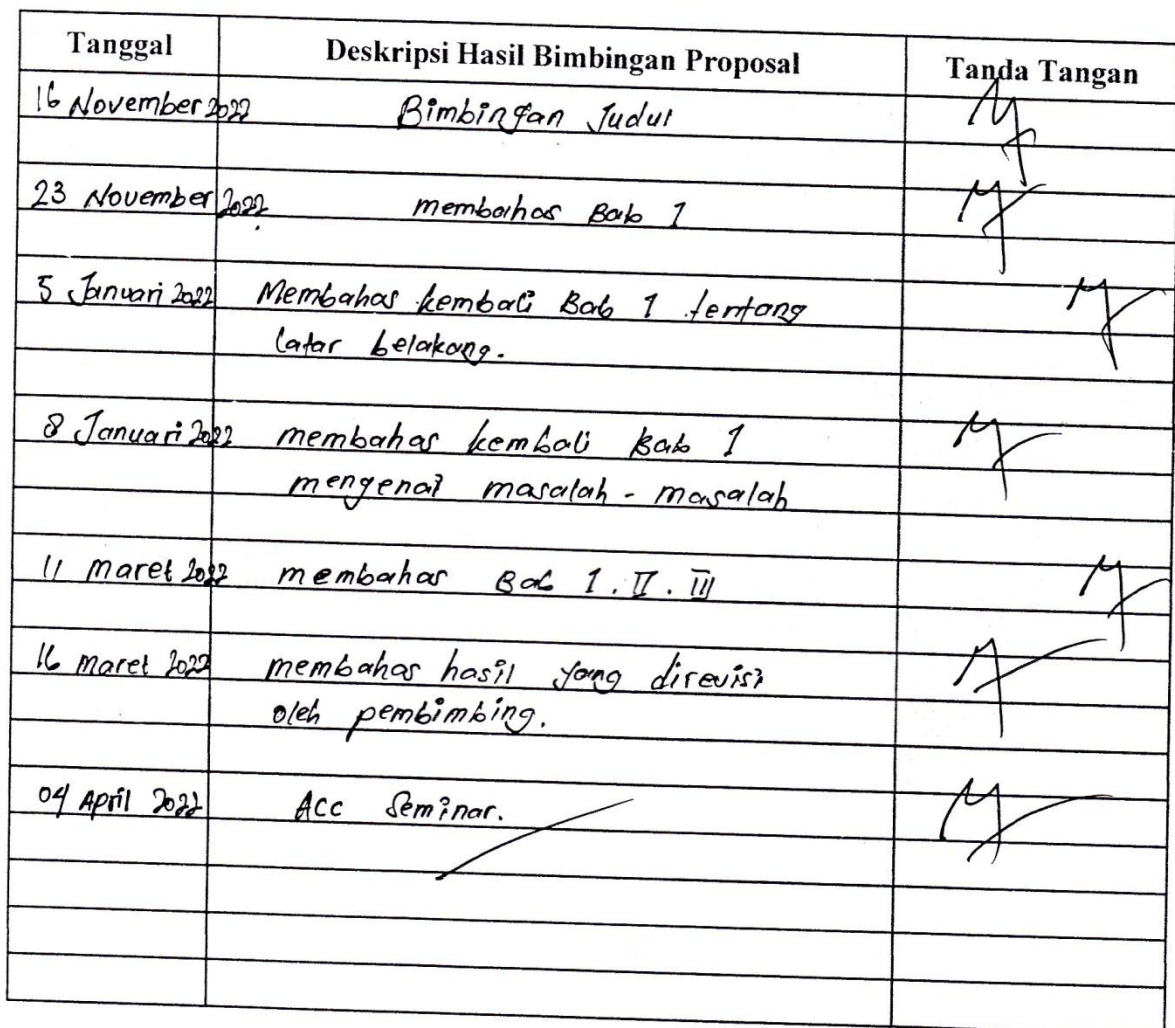 Tanggal Deskripsi Hasil Bimbingan Proposal Tanda Tangan
16 November 2022 Bimbingan Judul
23 November 2022 membahas Bab 1
5 Januari 2022 Membahas kembali Bab 1 tentang
latar belakang.
8 Januari 2022 membahas kembali Bab 1
mengenai masalah - masalah
11 maret 2022 membahas Bab 1. II. III
16 maret 2022 membahas hasil yang direvisi
oleh pembimbing.
04 April 2022 Acc Seminar.